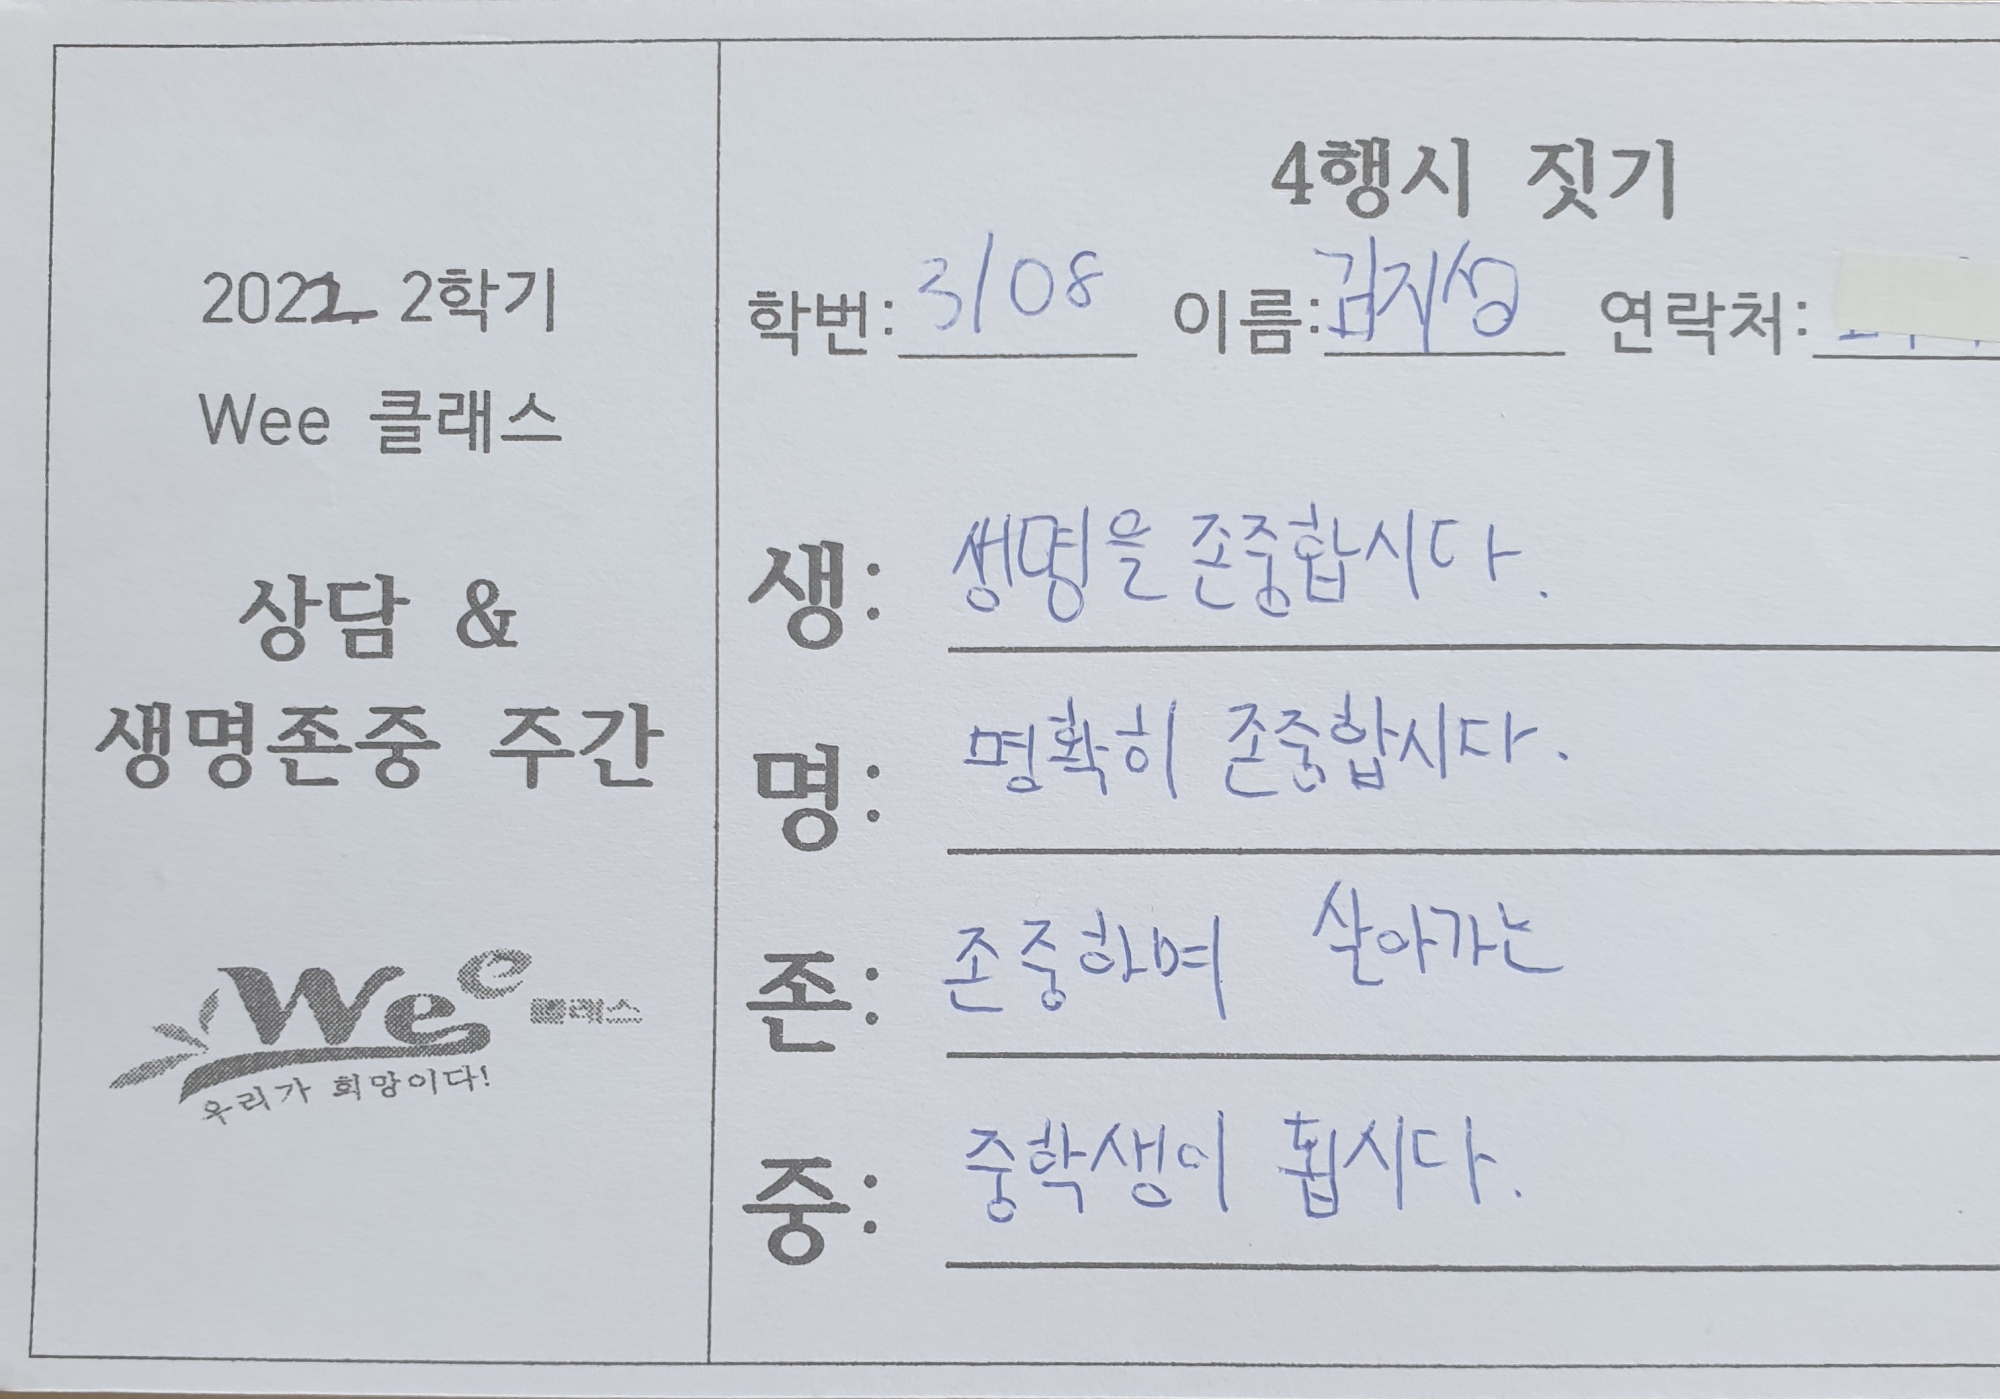 2022. 2학기
Wee 클래스
상담 &
생명존중 주간
Wee 클래스
우리가 희망이다!
4행시 짓기
학번: 3108 이름: 김지성 연락처:
생: 생명을 존중합시다.
명: 명확히 존중합시다.
존: 존중하며 살아가는
중: 중학생이 됩시다.